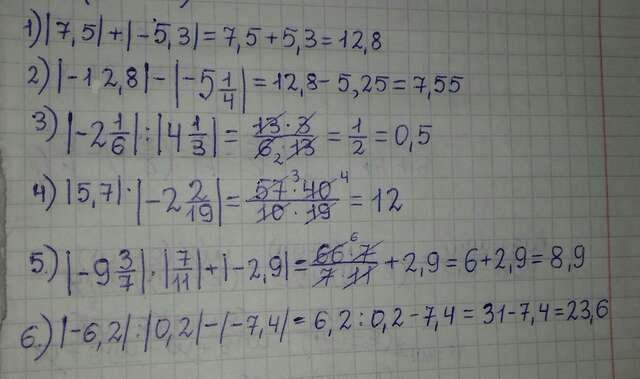 1) |7,5| + |-5,3| = 7,5 + 5,3 = 12,8
2) |-12,8| - |-5 1/4| = 12,8 - 5,25 = 7,55
3) |-2 1/6| : |4 1/3| = 13·3/6₂·13 = 1/2 = 0,5
4) |5,7| · |-2 2/19| = 57³·40⁴/10·19 = 12
5.) |-9 3/7| · |7/11| + |-2,9| = 66⁶·7/7·11 + 2,9 = 6 + 2,9 = 8,9
6.) |-6,2| : |0,2| - |-7,4| = 6,2 : 0,2 - 7,4 = 31 - 7,4 = 23,6